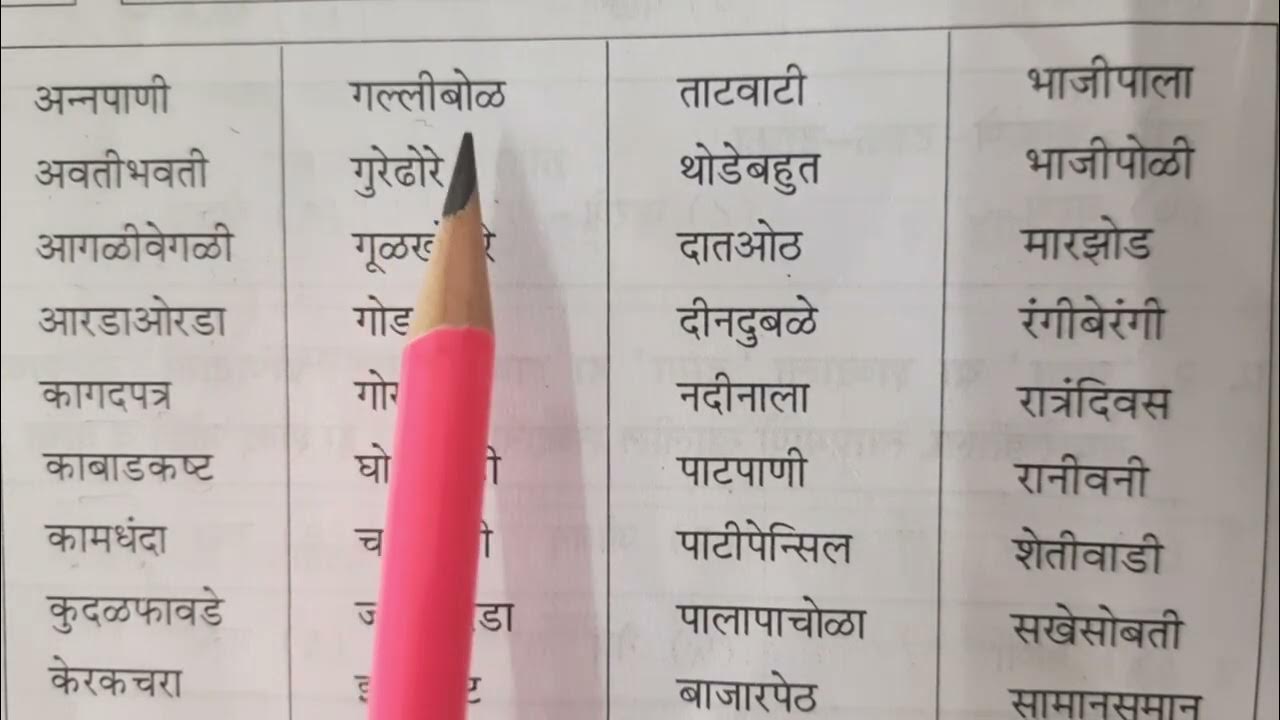 अन्नपाणी गल्लीबोळ ताटवाटी भाजीपाला
अवतीभवती गुरेढोरे थोडेबहुत भाजीपोळी
आगळीवेगळी दातओठ मारझोड
आरडाओरडा दीनदुबळे रंगीबेरंगी
कागदपत्र नदीनाला रात्रंदिवस
काबाडकष्ट पाटपाणी रानीवनी
कामधंदा पाटीपेन्सिल शेतीवाडी
कुदळफावडे पालापाचोळा सखेसोबती
केरकचरा बाजारपेठ सामानसुमान